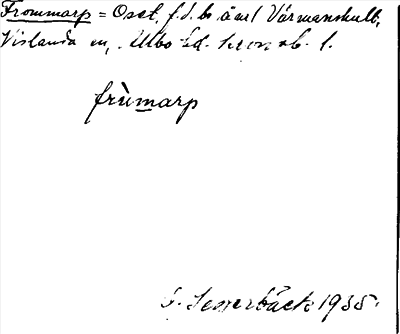 Frommarp = Oset, f.d. bs å en 1 Värmanshult,
Vislanda sn, Albo hd. Kronob. l.
frùmarp
G. Sennerbäck 1935.